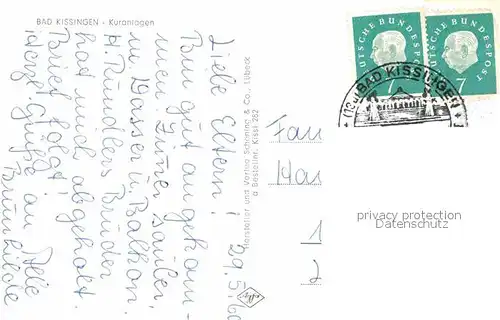 BAD KISSINGEN - Kuranlagen
Liebe Eltern! 29.5.60
Bin gut angekom-
men. Zimmer sauber,
m. Wasser u. Balkon.
H. Bruder
hat mich abgeholt.
Brief folgt.
Herzl. Grüße an Alle
Brunhilde
Hersteller und Verlag Schöning & Co., Lübeck
Bestellnr. Kissi 282
DEUTSCHE BUNDESPOST
7
DEUTSCHE BUNDESPOST
7
BAD KISSINGEN
Fam
1
2
privacy protection
Datenschutz